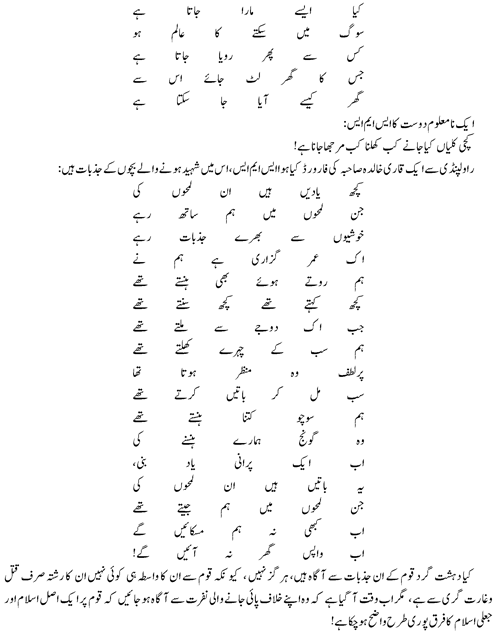 کیا ایسے مارا جاتا ہے
سوگ میں سکتے کا عالم ہو
کس سے پھر رویا جاتا ہے
جس کا گھر لٹ جائے اس سے
گھر کیسے آیا جا سکتا ہے
ایک نامعلوم دوست کا ایس ایم ایس:
کچی کلیاں کیا جانے کب کھلنا کب مرجھا جانا ہے!
راولپنڈی سے ایک قاری خالدہ صاحبہ کی فارورڈ کیا ہوا ایس ایم ایس، اس میں شہید ہونے والے بچوں کے جذبات ہیں:
کچھ یادیں ہیں ان لمحوں کی
جن لمحوں میں ہم ساتھ رہے
خوشیوں سے بھرے جذبات رہے
اک عمر گزاری ہے ہم نے
ہم روتے ہوئے بھی ہنستے تھے
کچھ کہتے تھے کچھ سنتے تھے
جب اک دوجے سے ملتے تھے
ہم سب کے چہرے کھلتے تھے
پرلطف وہ منظر ہوتا تھا
سب مل کر باتیں کرتے تھے
ہم سوچو کتنا ہنستے تھے
وہ گونج ہمارے ہنسنے کی
اب ایک پرانی یاد بنی،
یہ باتیں ہیں ان لمحوں کی
جن لمحوں میں ہم جیتے تھے
اب کبھی نہ ہم مسکائیں گے
اب واپس گھر نہ آئیں گے!
کیا دہشت گرد قوم کے ان جذبات سے آگاہ ہیں، ہرگز نہیں، کیونکہ قوم سے ان کا واسطہ ہی کوئی نہیں ان کا رشتہ صرف قتل
وغارت گری سے ہے، مگر اب وقت آگیا ہے کہ وہ اپنے خلاف پائی جانے والی نفرت سے آگاہ ہو جائیں کہ قوم پر ایک اصل اسلام اور
جعلی اسلام کا فرق پوری طرح واضح ہوچکا ہے!